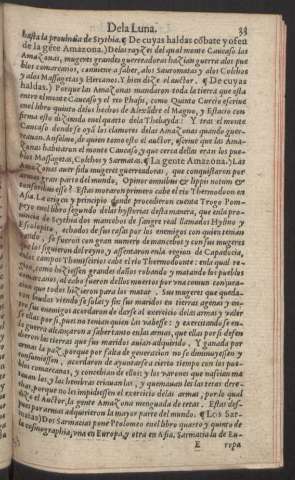 De la Luna. 33
hasta la prouincia de Scythia. ¶ De cuyas haldas cõbate y ofen
de la gẽte Amazona.) Delas rayzes del qual monte Caucaso las
Amazonas, mugeres grandes guerreadoras hazian guerra alos pue
blos comarcanos, conuiene a saber, alos Sauromatas y alos Colchos
y alos Massagetas y Hercanos. Y bien dize el auctor. ¶ De cuyas
haldas.) Porque las Amazonas mandaron toda la tierra que esta
entre el monte Caucaso y el rio Phasis, como Quinto Curcio escriue
enel libro quinto delos hechos de Alexãdre el Magno, y Estacio con
firma esto diziendo enel quarto dela Thebayda: Y tras el monte
Caucaso donde se oyã los clamores delas Amazonas quando guer-
reauan. Assi dize, de quien tomo esto el auctor, escriue que las Ama-
zonas habitaron el monte Caucaso, y que cerca dellas eran los pue-
blos Massagetas, Colchos y Sarmatas. ¶ La gente Amazona.) Las
Amazonas auer sido mugeres guerreadoras, que conquistaron por
armas gran parte del mundo, Opinor omnibus & lippis notum &
tonsoribus esse: Estas moraron primero cabe el rio Thermodoon en
Asia. La origen y principio donde procedieron cuenta Trogo Pom-
peyo enel libro segundo delas hystorias desta manera, que enla pro-
uincia de Scythia dos mancebos de sangre real llamados Hylino y
Escolopito, echados de sus casas por los enemigos con quien tenian
vando, se fueron con gran numero de mancebos y con sus mugeres
que los siguieron del reyno, y assentaron enla region de Capadocia,
enlos campos Themiscirios cabe el rio Thermodoonte: enla qual re-
gion, como hiziessen grandes daños robando y matando los pueblos
comarcanos, alcabo fueron dellos muertos por vna comun conjura-
cion que todos hizieron para los matar. Sus mugeres que queda-
ron biudas viendo se solas y sin sus maridos en tierras agenas y en-
tre sus enemigos acordaron de darse al exercicio delas armas y valer
se ellas por si, pues no tenian quien las valiesse: y exercitando se en
la guerra alcançaron a saber tanto enlas armas, que ellas por si defen
dieron las tierras que sus maridos auian adquirido. Y ganada por
armas la paz, porque por falta de generacion no se diminuyessen y
consumiessen, acordaron de ayuntarse a cierto tiempo con los pue-
blos comarcanos, y concebian de ellos: y los varones que nascian ma
tauan los, y las hembras criauan las, y quemauan les las tetas dere-
chas, porque no les impidiessen el exercicio delas armas, por lo qual
dize el Auctor, la gente Amazona menguada de tetas. Estas des-
pues por armas adquirieron la mayor parte del mundo. ¶ Los Sar-
matas.) Dos Sarmacias pone Ptolomeo enel libro quarto y quinto de
la cosmographia, vna en Europa y otra en Asia. Sarmacia la de Eu-
E ropa